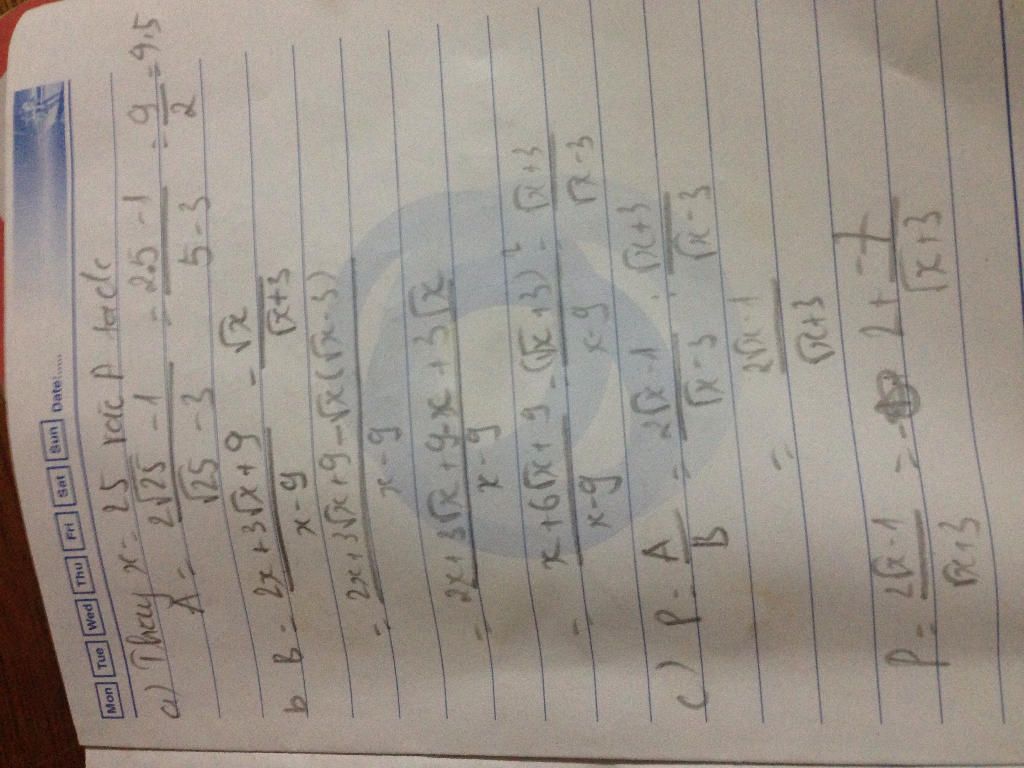 Mon Tue Wed Thu Fri Sat Sun Date:......
a) Thay x = 25 vào P
A = (2√25 - 1)/(√25 - 3) = (2.5 - 1)/(5 - 3) = 9/2 = 4,5
b B = (2x + 3√x + 9)/(x - 9) - √x/(√x + 3)
= (2x + 3√x + 9 - √x(√x - 3))/(x - 9)
= (2x + 3√x + 9 - x + 3√x)/(x - 9)
= (x + 6√x + 9)/(x - 9) = (√x + 3)²/(x - 9) = (√x + 3)/(√x - 3)
c) P = A/B = (2√x - 1)/(√x - 3) : (√x + 3)/(√x - 3)
= (2√x - 1)/(√x + 3)
P = (2√x - 1)/(√x + 3) = 2 + -7/(√x + 3)